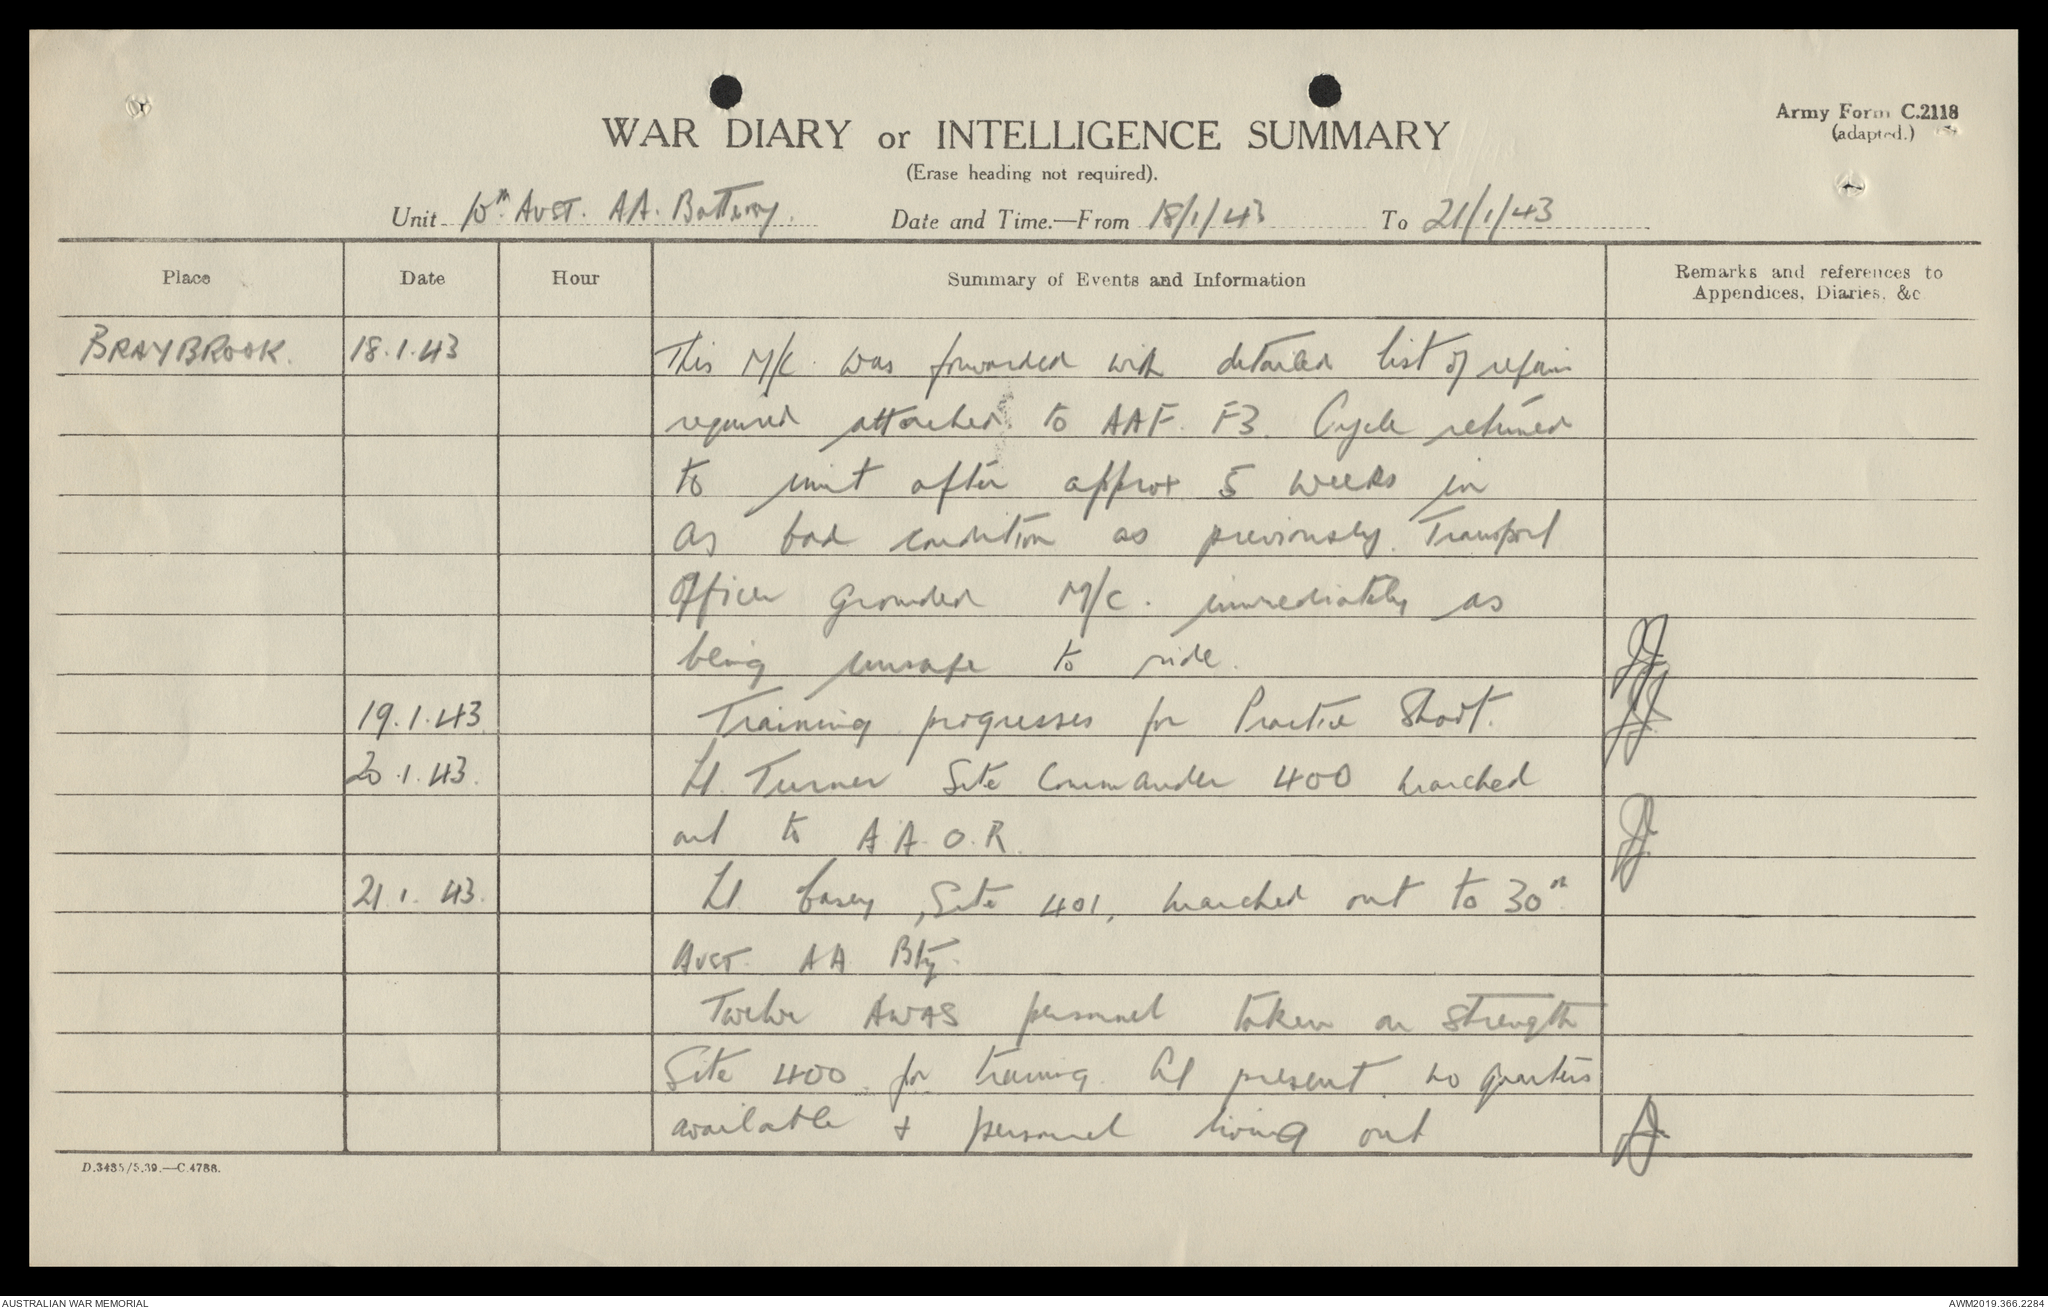 Army Form C.2118
(adapted.)
WAR DIARY or INTELLIGENCE SUMMARY
(Erase heading not required).
Unit 10th Aust. AA. Battery. Date and Time.—From 18/1/43 To 21/1/43
Place Date Hour Summary of Events and Information Remarks and references to
Appendices, Diaries, &c
BRAYBROOK. 18.1.43 This M/C. was forwarded with detailed list of repair
required attached to AAF. F3. Cycle returned
to unit after approx 5 weeks in
as bad condition as previously. Transport
Officer grounded M/C. immediately as
being unsafe to ride.
19.1.43 Training progresses for Practice Shoot.
20.1.43. Lt. Turner Site Commander 400 marched
out to A.A.O.R.
21.1.43. Lt. Casey, Site 401, marched out to 30th
Aust. AA Bty.
Twelve AWAS personnel taken on strength
Site 400 for training. At present no quarters
available + personnel living out
D.3485/5.39.—C.4788.
AUSTRALIAN WAR MEMORIAL
AWM2019.366.2284